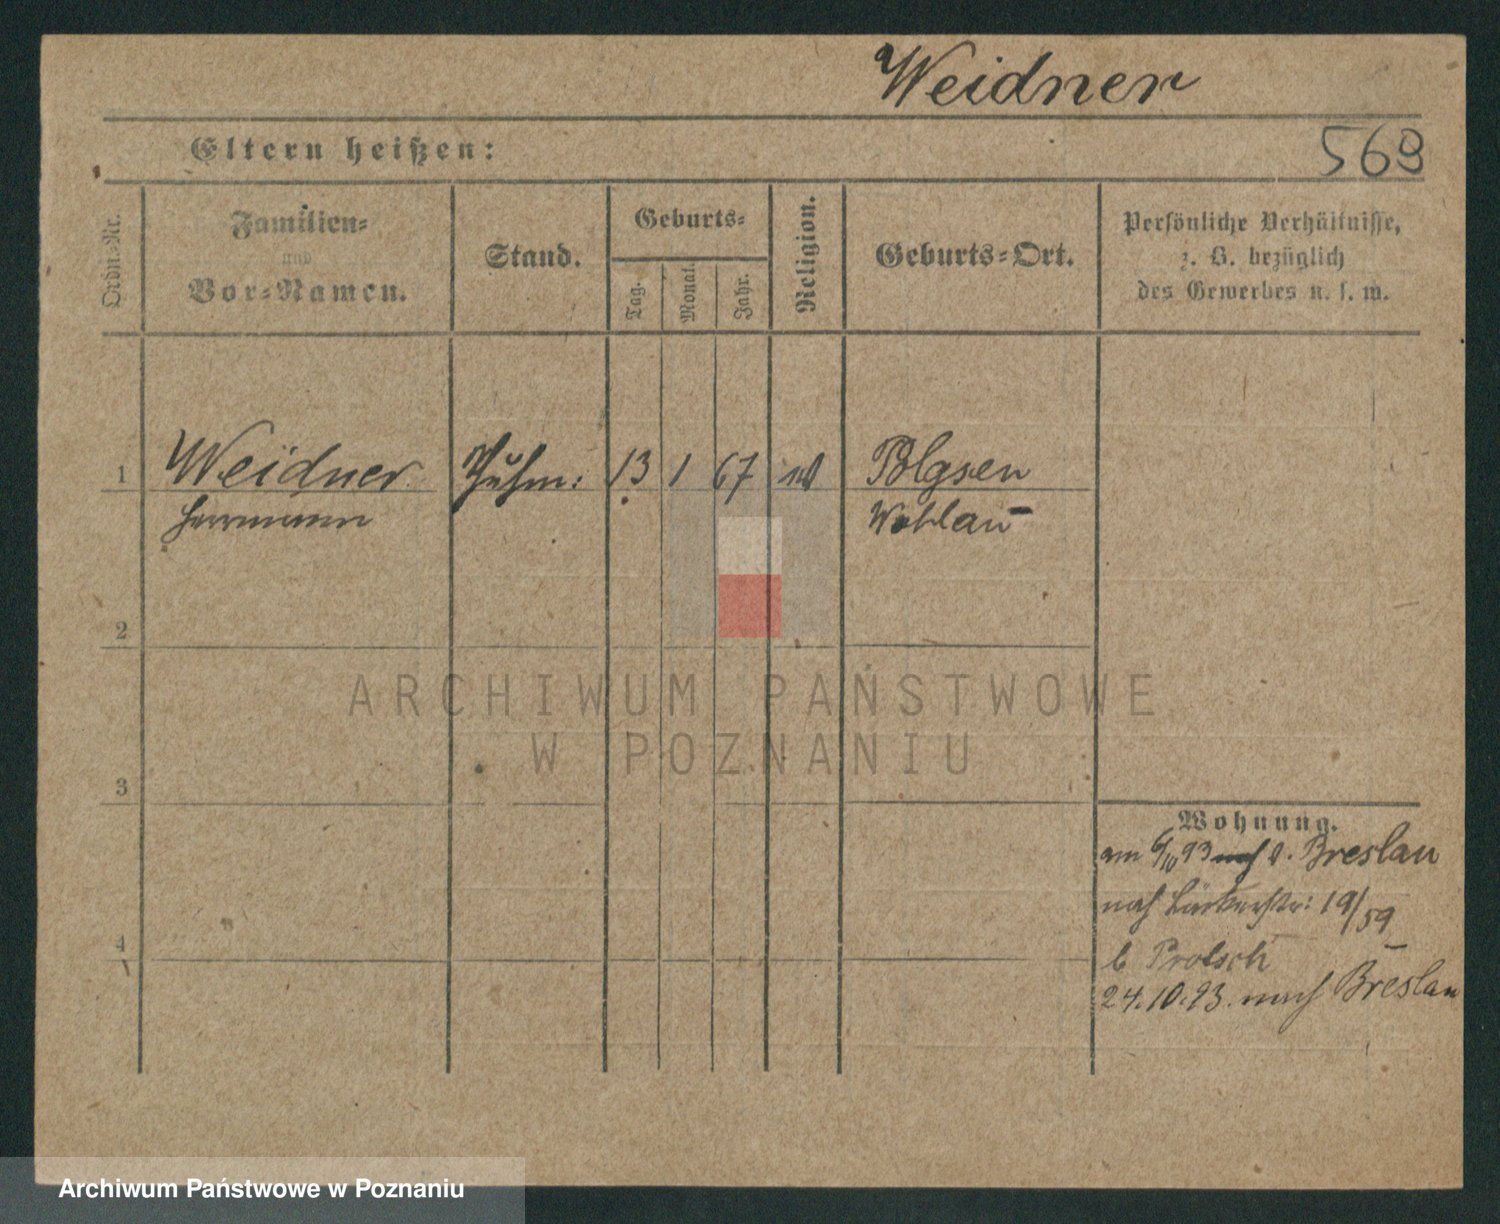 Weidner
569
Eltern heißen:
Ordn.-Nr.
Familien-
und
Vor-Namen.
Stand.
Geburts-
Tag.
Monat.
Jahr.
Religion.
Geburts-Ort.
Persönliche Verhältnisse,
z. B. bezüglich
des Gewerbes u. s. w.
1 Weidner 13 1 67 Polgsen
Herrmann Wohlau
2
3
4
ARCHIWUM PAŃSTWOWE
W POZNANIU
Wohnung.
am 6/10 93 v. Breslau
nach 19/59
b Protsch
24.10.93. nach Breslau
Archiwum Państwowe w Poznaniu